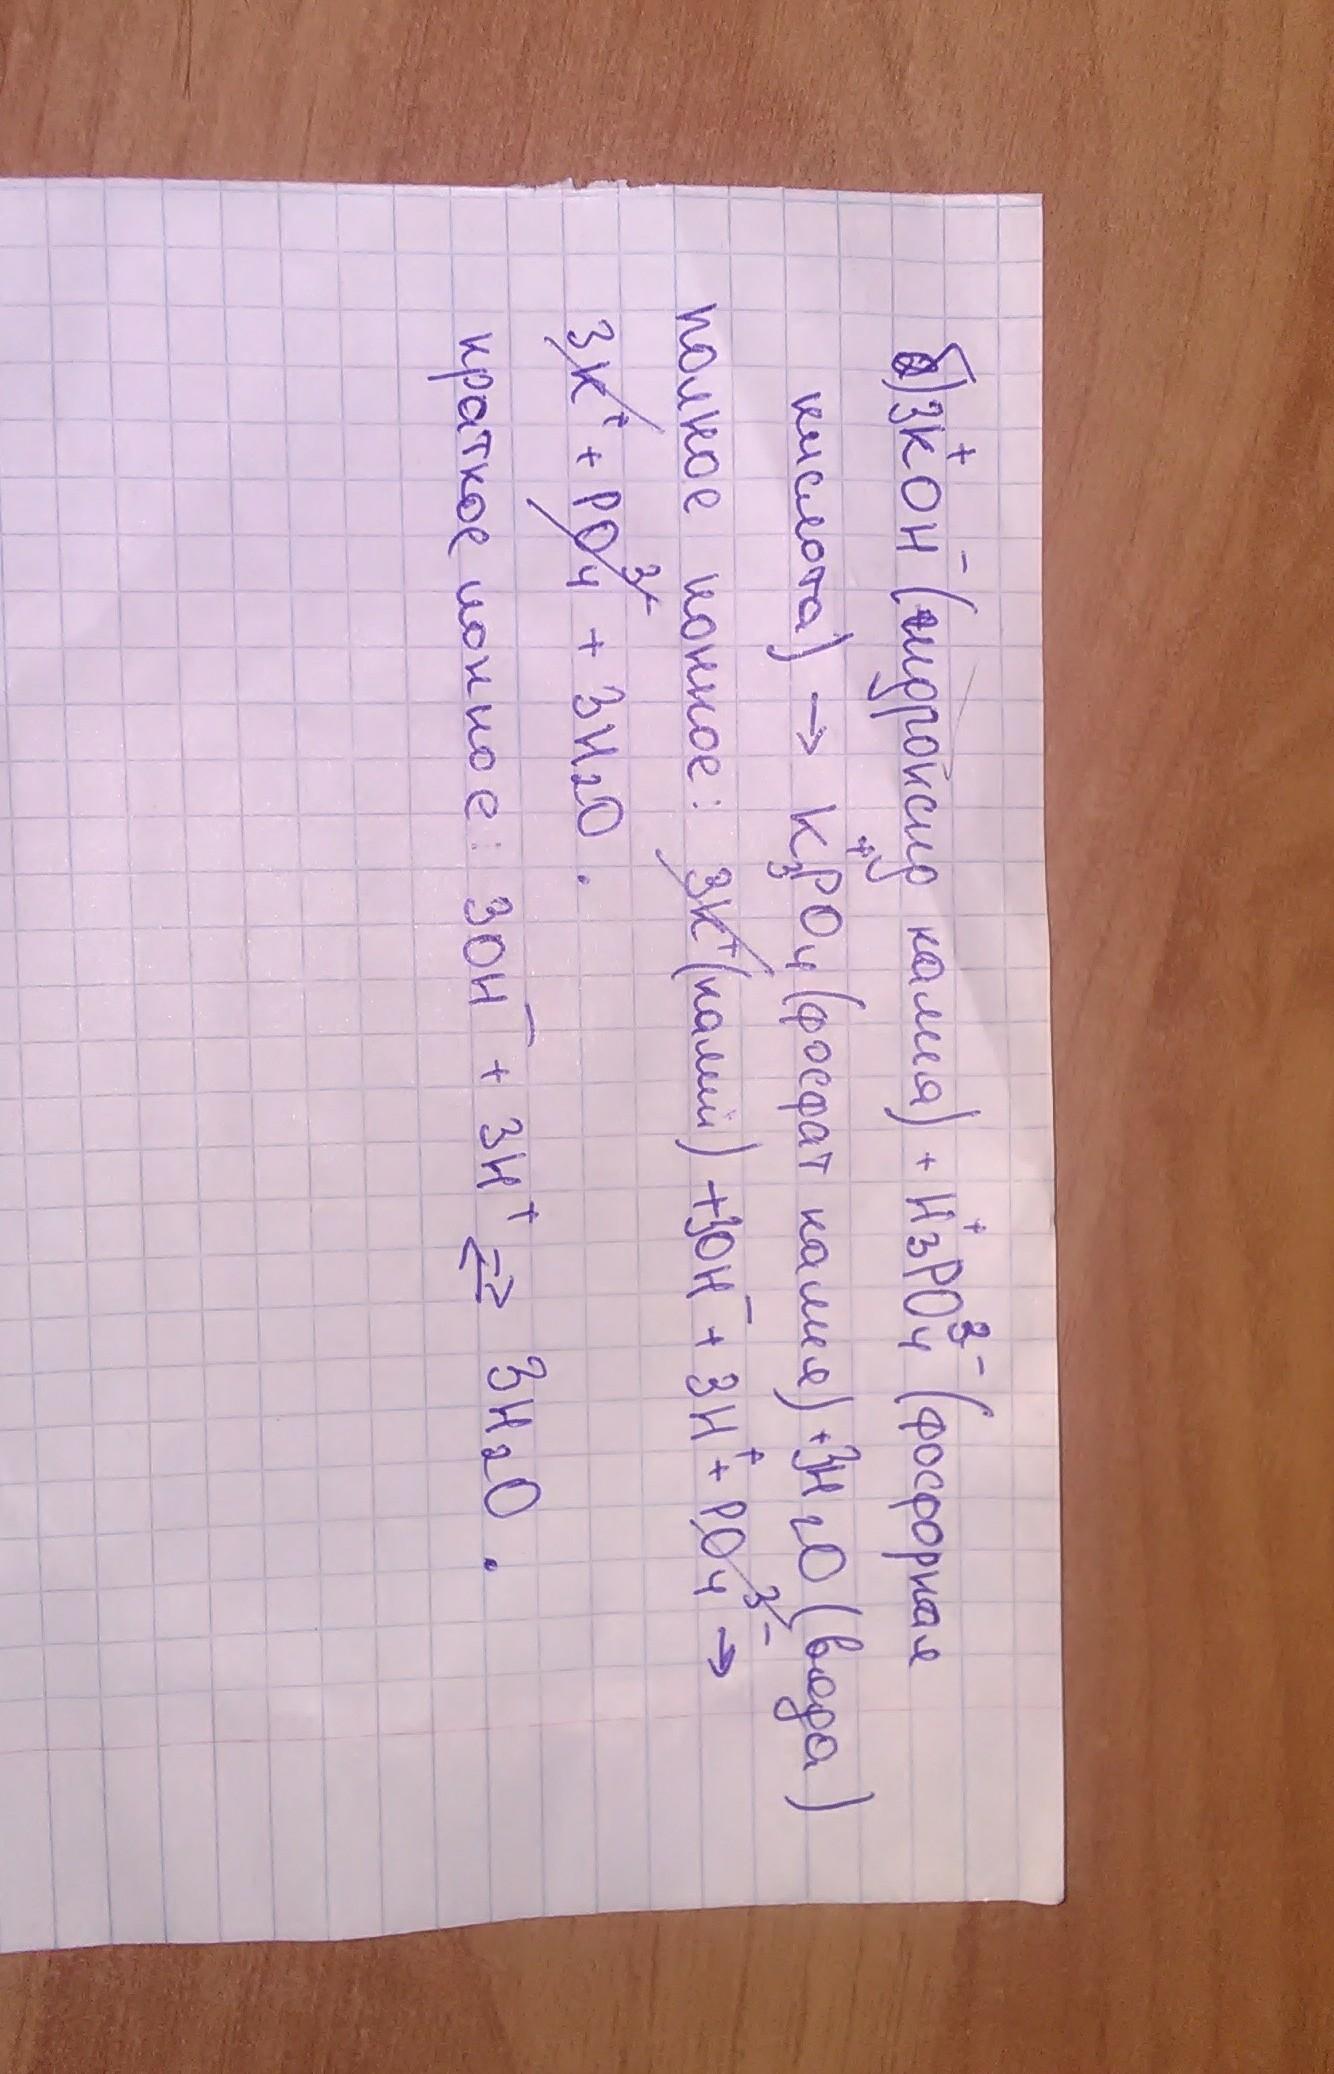 б) 3K⁺OH⁻ (гидроксид калия) + H⁺₃PO₄³⁻ (фосфорная
кислота) → K₃PO₄ (фосфат калия) + 3H₂O (вода)
полное ионное: 3K⁺ (калий) + 3OH⁻ + 3H⁺ + PO₄³⁻ →
3K⁺ + PO₄³⁻ + 3H₂O.
краткое ионное: 3OH⁻ + 3H⁺ ⇄ 3H₂O.